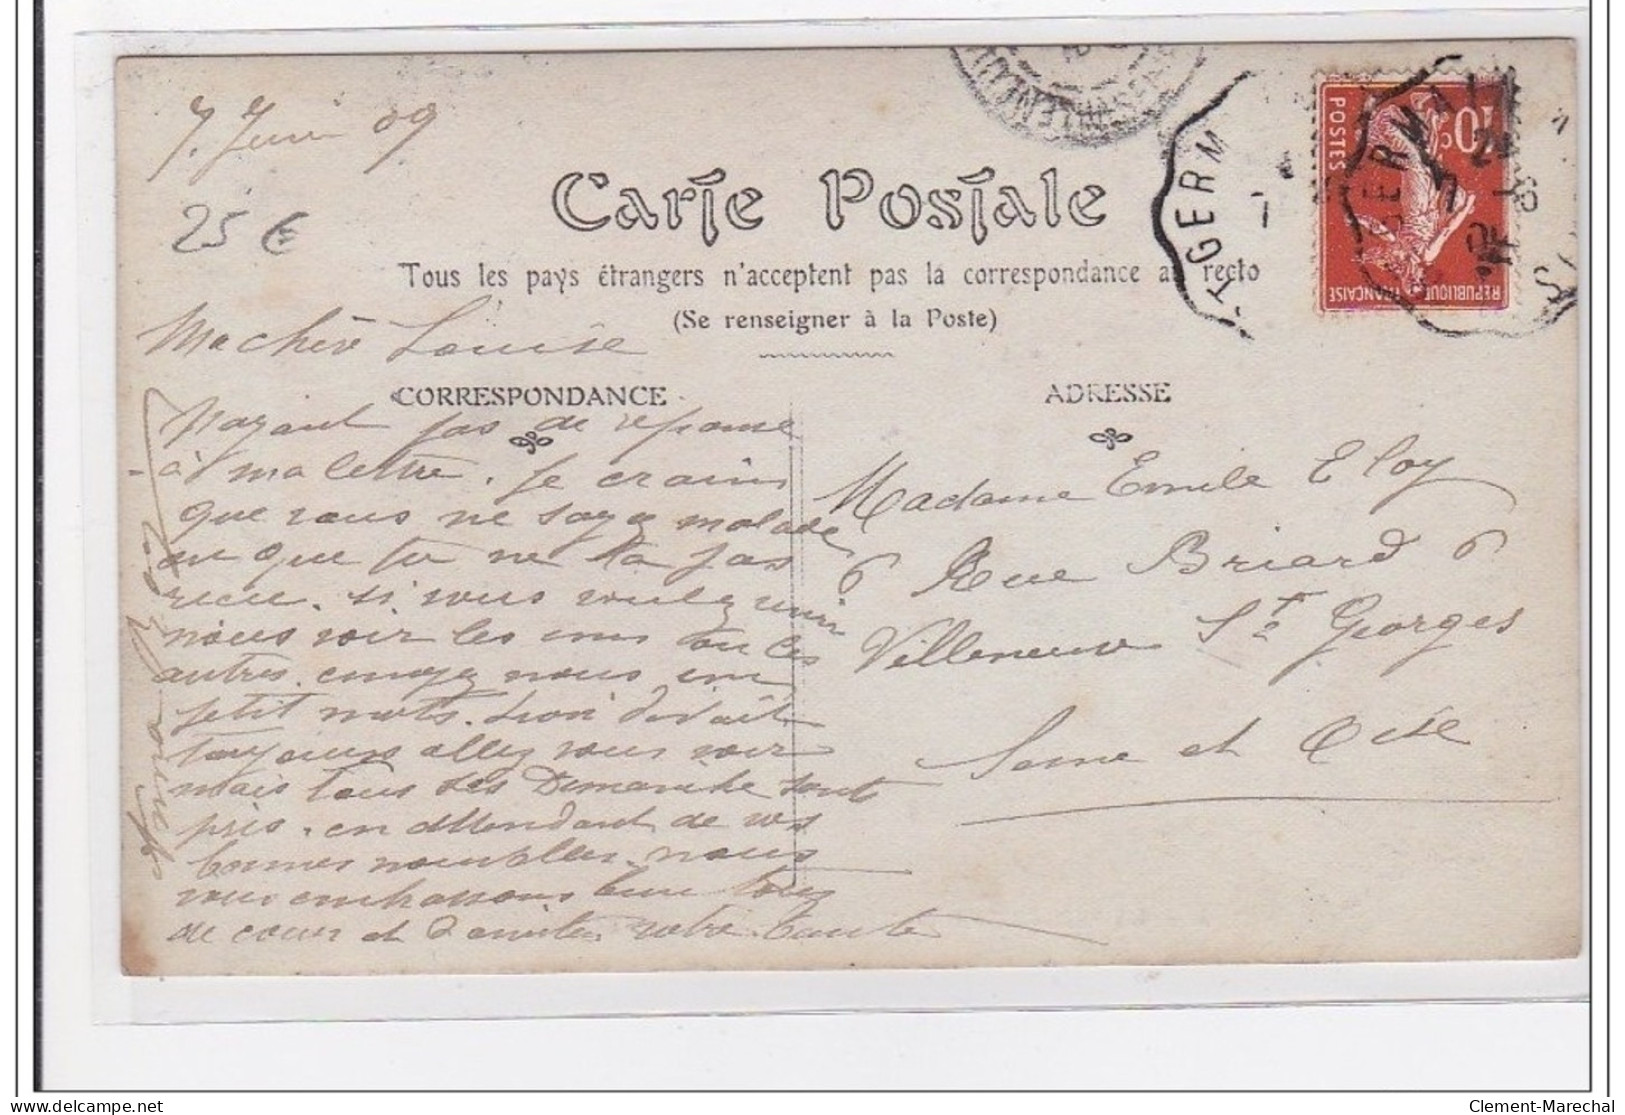 7. Juin 09
25 €
Carte Postale
Tous les pays étrangers n'acceptent pas la correspondance au recto
(Se renseigner à la Poste)
Ma chère Louise
CORRESPONDANCE
nayant pas de reponse
à ma lettre. je crains
que vous ne soyez malade
ou que tu ne la pas
recue. si vous voulez venir
nous voir les uns ou les
autres. envoyez nous un
petit mots. Léon disait
toujours allez vous voir
mais tous ses Dimanche sont
pris. en attendant de vos
bonnes nouvelles. nous
vous embrassons bien tous
de cœur et d'amitié. votre tante
ADRESSE
Madame Emile Eloy
6 Rue Briard 6
Villeneuve St Georges
Seine et Oise
10c
POSTES
REPUBLIQUE FRANÇAISE
ST GERM
7
ST GERMAIN
7
Clement-Marechal
delcampe.net